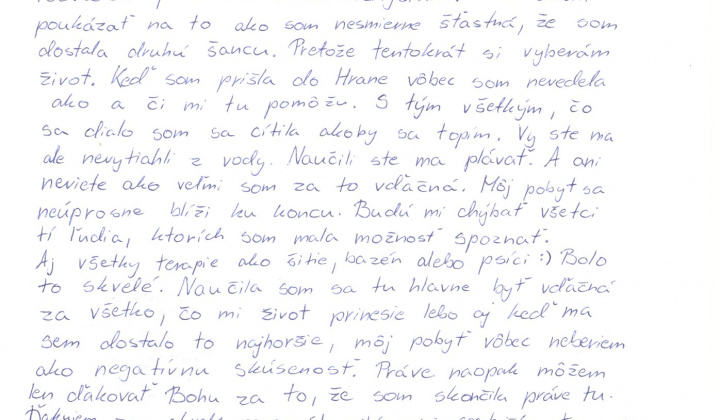 poukázať na to ako som nesmierne šťastná, že som
dostala druhú šancu. Pretože tentokrát si vyberám
život. Keď som prišla do Hrane vôbec som nevedela
ako a či mi tu pomôžu. S tým všetkým, čo
sa dialo som sa cítila akoby sa topím. Vy ste ma
ale nevytiahli z vody. Naučili ste ma plávať. A ani
neviete ako veľmi som za to vďačná. Môj pobyt sa
neúprosne blíži ku koncu. Budú mi chýbať všetci
tí ľudia, ktorích som mala možnosť spoznať.
Aj všetky terapie ako šitie, bazén alebo psíci :) Bolo
to skvelé. Naučila som sa tu hlavne byť vďačná
za všetko, čo mi život prinesie lebo aj keď ma
sem dostalo to najhoršie, môj pobyt vôbec neberiem
ako negatívnu skúsenosť. Práve naopak môžem
len ďakovať Bohu za to, že som skončila práve tu.